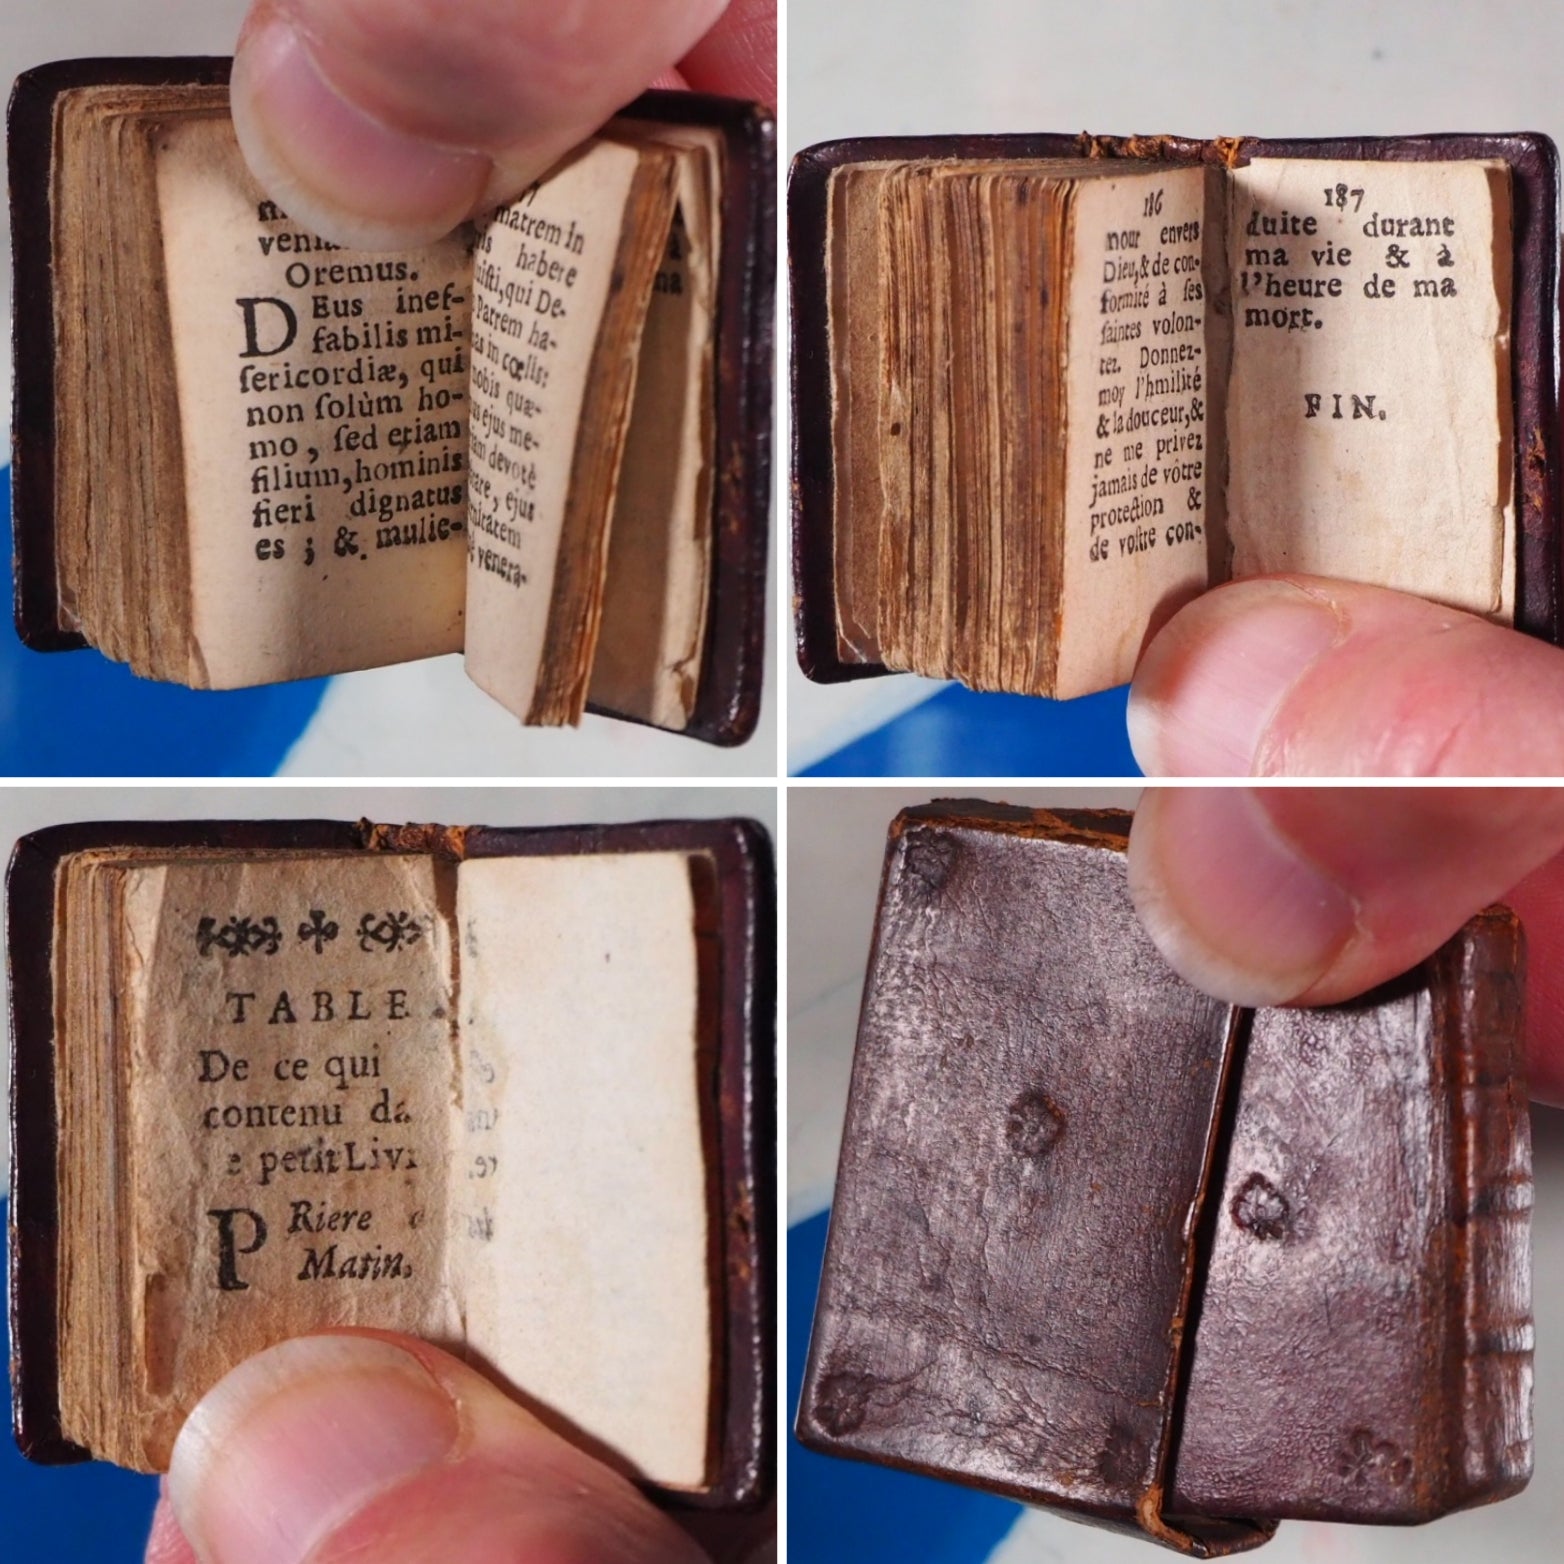 Oremus.
DEus inef-
fabilis mi-
ſericordiæ, qui
non ſolùm ho-
mo, ſed etiam
filium, hominis
fieri dignatus
es ; & mulie-
matrem in
habere
qui De-
Patrem ha-
in cœlis:
quæ-
ejus me-
devotè
ejus
venera-
186
mour envers
Dieu, & de con-
formité à ſes
ſaintes volon-
tez. Donnez-
moy l'hmilité
& la douceur, &
ne me privez
jamais de vôtre
protection &
de voſtre con-
187
duite durant
ma vie & à
l'heure de ma
mort.
FIN.
TABLE
De ce qui
contenu da
petit Liv
PRiere
Matin.